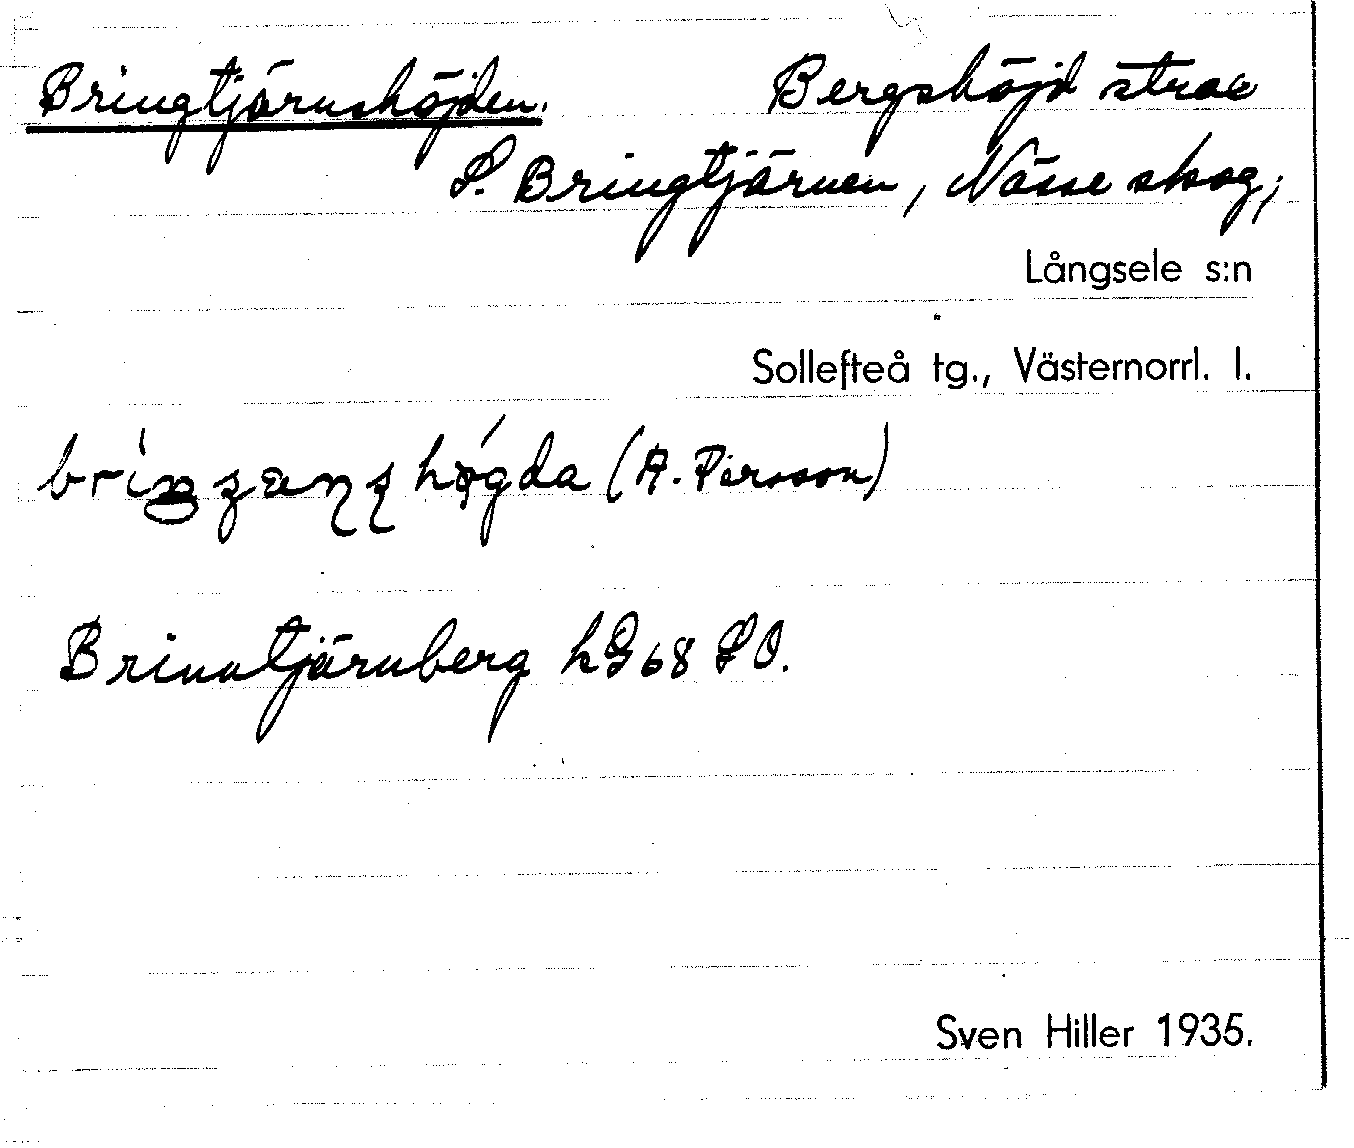 Bringtjärnshöjden. Bergshöjd strax
S. Bringtjärnen, Nässe skog,
Långsele s:n
Sollefteå tg., Västernorrl. l.
högda (A. Persson)
Brinntjärnberg hG 68 SO.
Sven Hiller 1935.